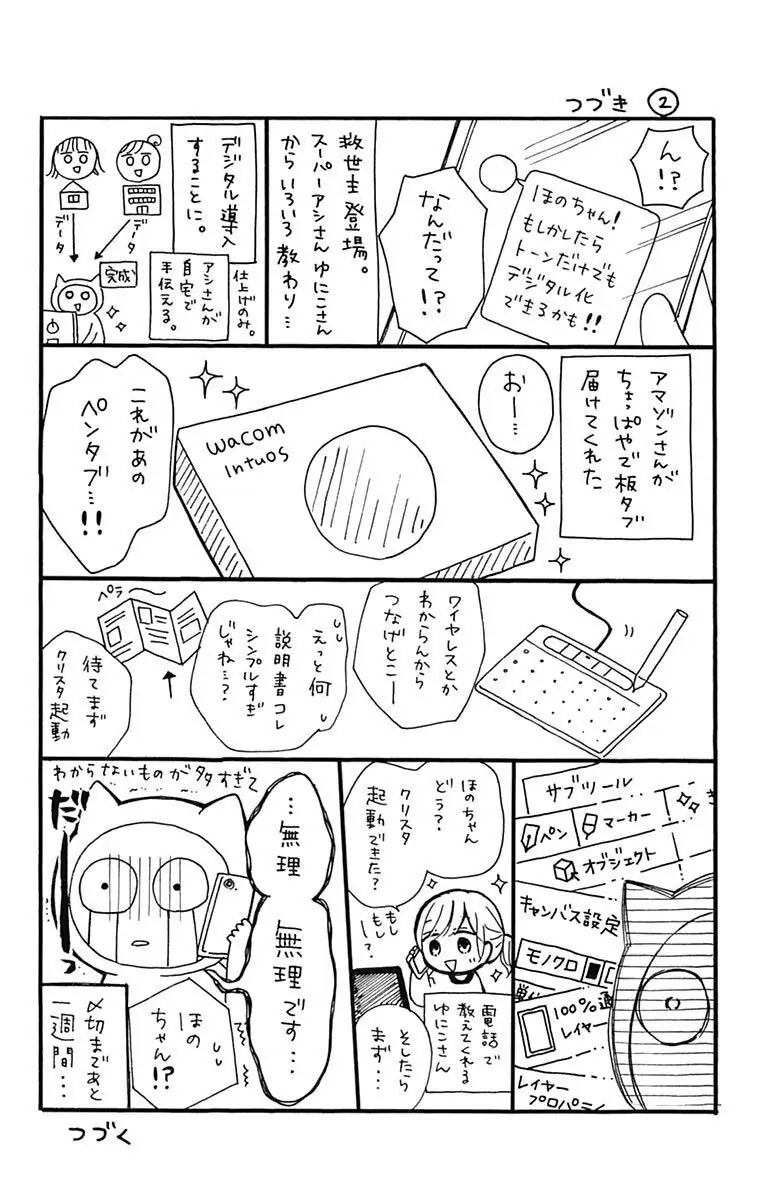 つづき ②
ん!?
ほのちゃん!
もしかしたら
トーンだけでも
デジタル化
できるかも!!
なんだって!?
救世主登場。
スーパーアシさん ゆにこさん
からいろいろ教わり…
デジタル導入
することに。
仕上げのみ。
アシさんが
自宅で
手伝える。
データ
データ
完成
アマゾンさんが
ちょっぱやで板タブ
届けてくれた
おー…
wacom
Intuos
これがあの
ペンタブ…!!
ワイヤレスとか
わからんから
つなげとこー
えっと何
説明書コレ
シンプルすぎ
じゃね…?
ペラー
待てまず
クリスタ起動
サブツール
ペン
マーカー
オブジェクト
キャンバス設定
モノクロ
100%
レイヤー
レイヤー
プロパティ
ほのちゃん
どう?
クリスタ
起動できた?
もし
もし
ー?
電話で
教えてくれる
ゆにこさん
そしたら
まず…
わからないものが多すぎて
…無理
無理です…
だーっ
ほの
ちゃん!?
〆切まであと
一週間…
つづく